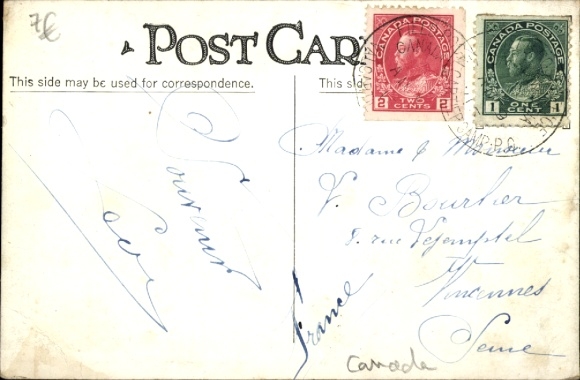 7€
POST CAR
This side may be used for correspondence.
This sid
CANADA POSTAGE
2 TWO CENTS 2
CANADA POSTAGE
1 ONE CENT 1
Souvenir
Madame & Monsieur
V. Bourlier
rue
Vincennes
Seine
France
Canada